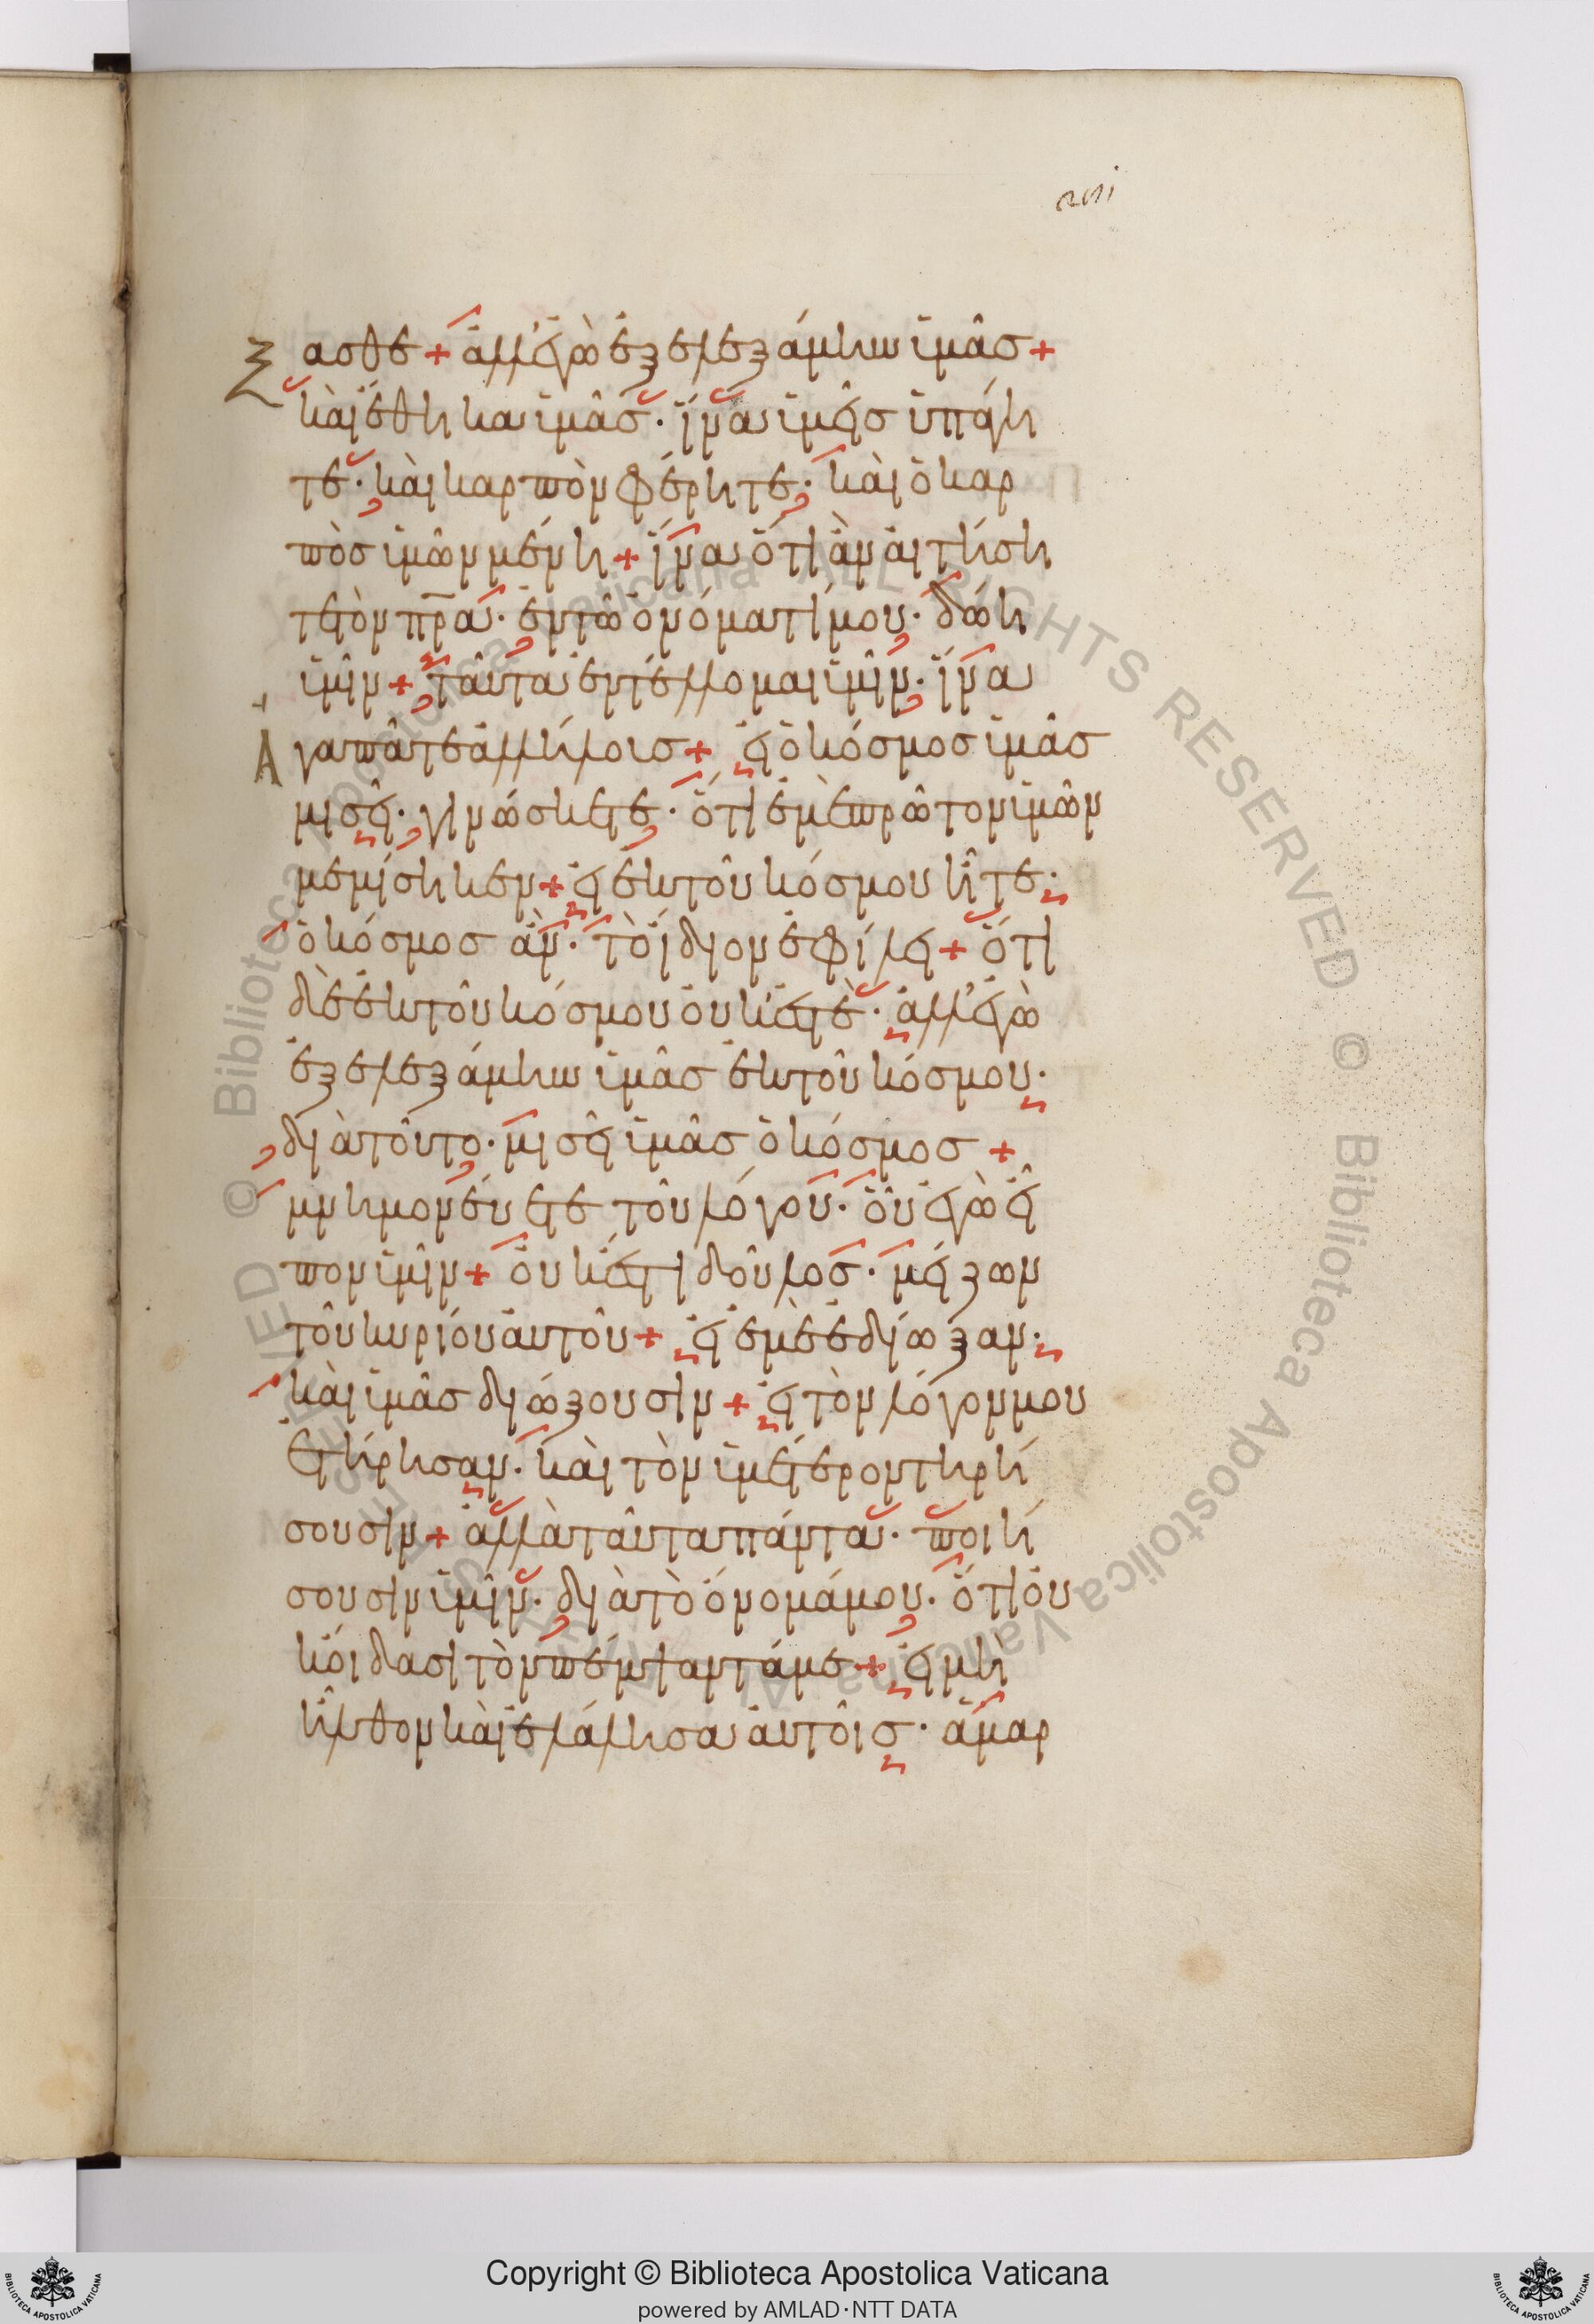 αυι
ξασθε + ἀλλ' ἐγὼ ἐξελεξάμην ϊμᾶσ +
καὶ ἔθηκα ϊμᾶσ · ἵνα ϊμεῖσ ὑπάγη
τε · καὶ καρπὸν φέρητε · καὶ ὁ καρ
πὸσ ϊμῶν μένη + ἵνα ὅτι ἂν αἰτήση
τε τὸν πρ̅α · ἐν τῶ ὀνόματί μου · δώη
ϊμῖν + ταῦτα ἐντέλλομαι ϊμῖν · ἵνα
Αγαπᾶτε ἀλλήλοισ + εἰ ὁ κόσμοσ ϊμᾶσ
μισεῖ · γινώσκετε · ὅτι ἐμὲ πρῶτον ϊμῶν
μεμίσηκεν + εἰ ἐκ τοῦ κόσμου ἦτε ·
ὁ κόσμοσ ἂν · τὸ ἴδιον ἐφίλει + ὅτι
δὲ ἐκ τοῦ κόσμου οὐκ ἐστὲ · ἀλλ' ἐγὼ
ἐξελεξάμην ϊμᾶσ ἐκ τοῦ κόσμου ·
διὰ τοῦτο · μισεῖ ϊμᾶσ ὁ κόσμοσ +
μνημονεύετε τοῦ λόγου · οὗ ἐγὼ εἶ
πον ϊμῖν + οὐκ ἔστι δοῦλοσ · μείζων
τοῦ κυρίου αὐτοῦ + εἰ ἐμὲ ἐδίωξαν ·
καὶ ϊμᾶσ διώξουσιν + εἰ τὸν λόγον μου
ἐτήρησαν · καὶ τὸν ϊμέτερον τηρή
σουσιν + ἀλλὰ ταῦτα πάντα · ποιή
σουσιν ϊμῖν · διὰ τὸ ὄνομά μου · ὅτι οὐ
κ οἴδασι τὸν πέμψαντά με + εἰ μὴ
ἦλθον καὶ ἐλάλησα αὐτοῖσ · ἁμαρ
Copyright © Biblioteca Apostolica Vaticana
powered by AMLAD·NTT DATA